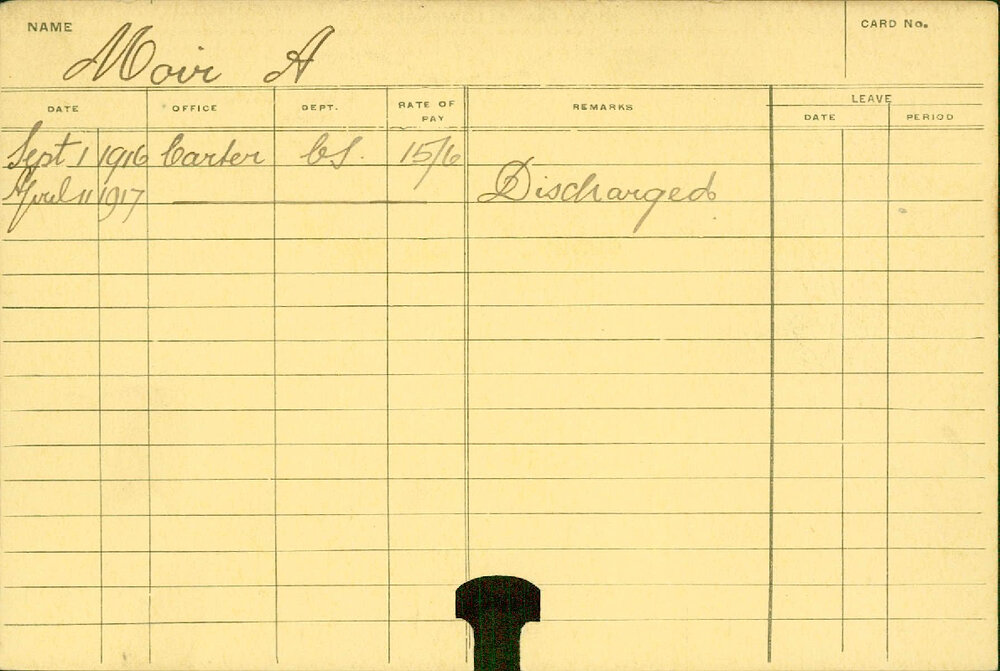 NAME Moir A CARD No.
DATE OFFICE DEPT. RATE OF PAY REMARKS LEAVE
DATE PERIOD
Sept 1 1916 Carter CS. 15/6
April 11 1917 Discharged